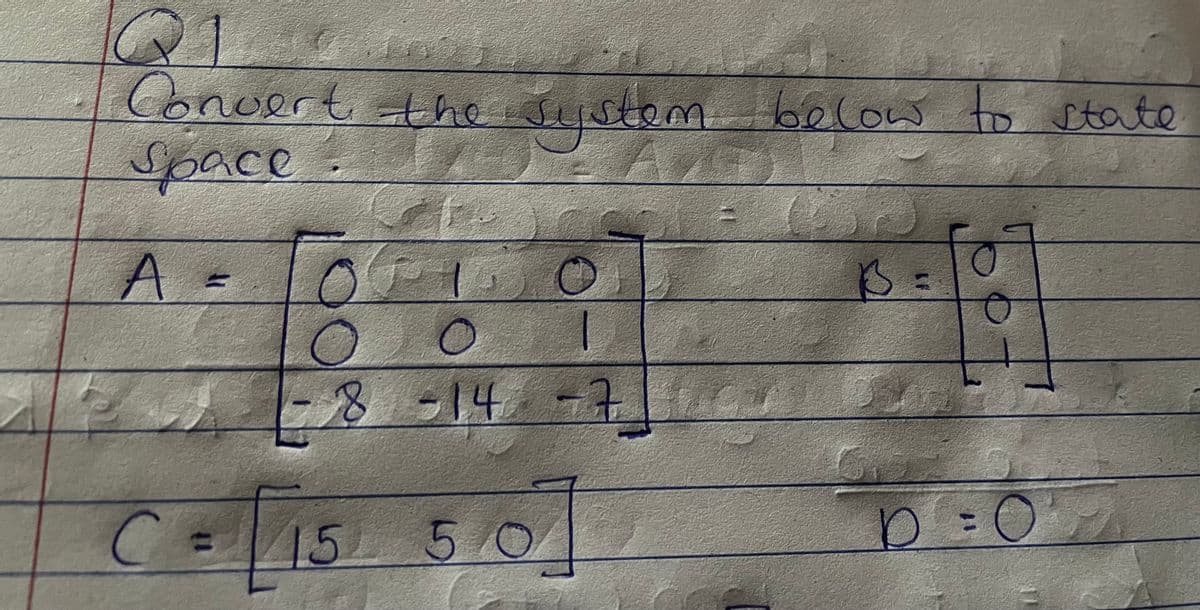 Q1
Convert the system below to state
space.
A = [0 1 0 B = [0
0 0 1 0
-8 -14 -7] 1]
C = [15 5 0] D = 0